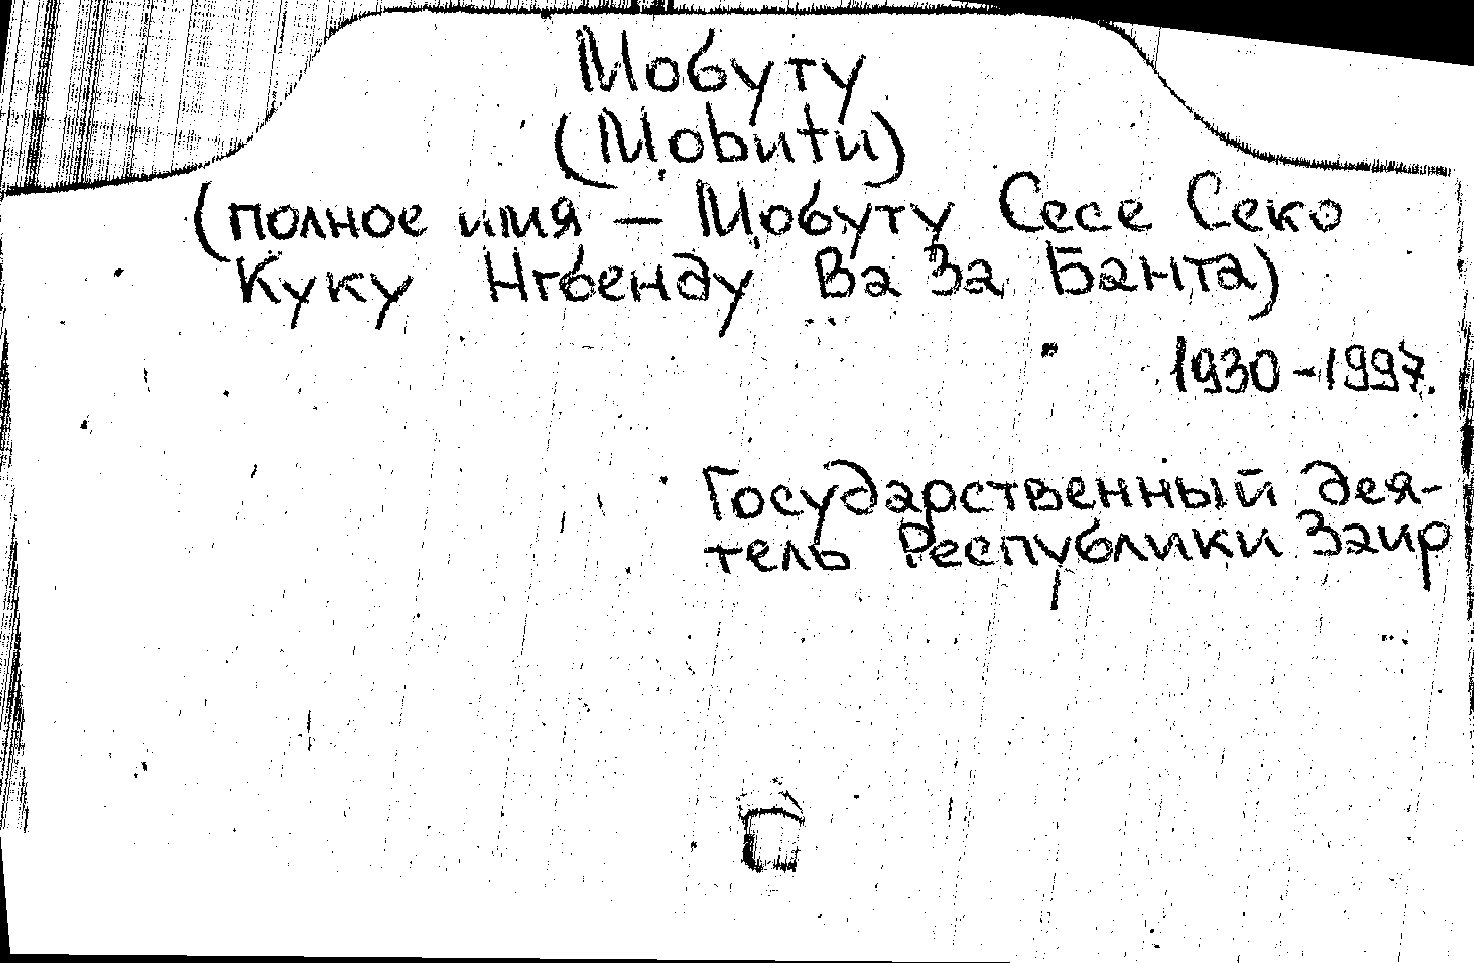 Мобуту
(Mobutu)
(полное имя — Мобуту Сесе Секо
Куку Нгбенду Ва За Банга)
1930-1997.
Государственный дея-
тель Республики Заир